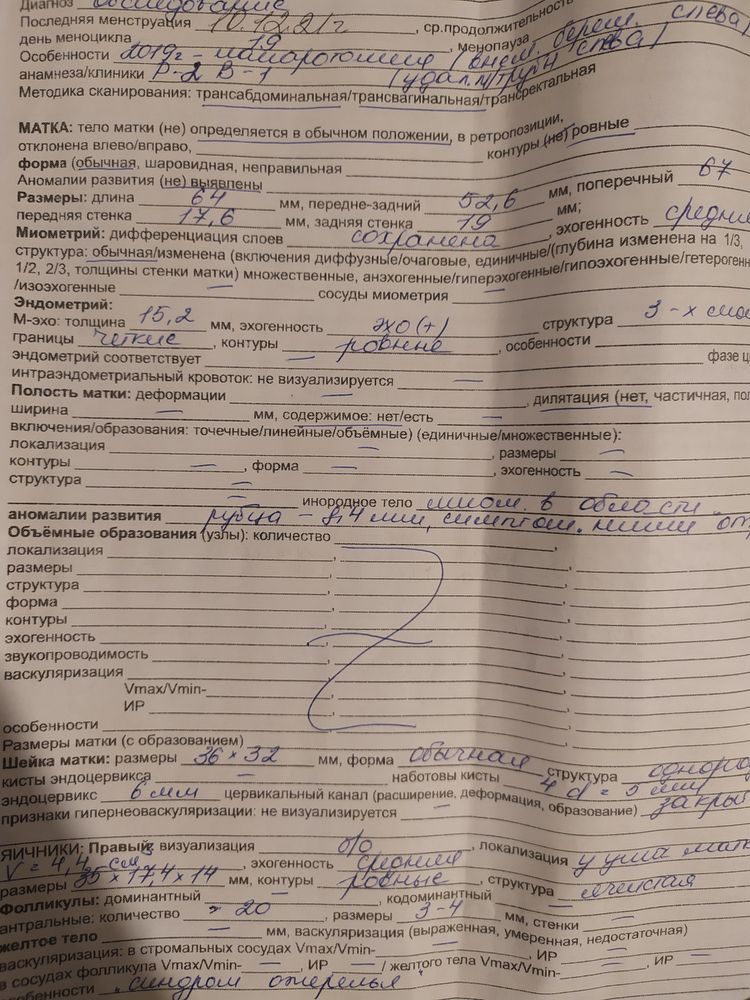 Диагноз обследование
Последняя менструация 10.12.21г, ср.продолжительность
день меноцикла 19, менопауза
Особенности 2019г – лапаротомия (внем. берем. слева)
анамнеза/клиники Р-2 В-1 (удал. м/трубы слева)
Методика сканирования: трансабдоминальная/трансвагинальная/трансректальная
МАТКА: тело матки (не) определяется в обычном положении, в ретропозиции,
отклонена влево/вправо, контуры (не) ровные
форма (обычная, шаровидная, неправильная
Аномалии развития (не) выявлены
Размеры: длина 64 мм, передне-задний 52,6 мм, поперечный 67
передняя стенка 17,6 мм, задняя стенка 19 мм;
Миометрий: дифференциация слоев сохранена, эхогенность средне
структура: обычная/изменена (включения диффузные/очаговые, единичные/(глубина изменена на 1/3,
1/2, 2/3, толщины стенки матки) множественные, анэхогенные/гиперэхогенные/гипоэхогенные/гетероген
/изоэхогенные — сосуды миометрия —
Эндометрий:
М-эхо: толщина 15,2 мм, эхогенность эхо(+) структура 3-х сло
границы четкие, контуры ровные, особенности
эндометрий соответствует — фазе ц
интраэндометриальный кровоток: не визуализируется —
Полость матки: деформации —, дилятация (нет, частичная, пол
ширина — мм, содержимое: нет/есть —
включения/образования: точечные/линейные/объёмные) (единичные/множественные):
локализация —, размеры —
контуры —, форма —, эхогенность —
структура —
— инородное тело миом. в области
аномалии развития рубца – 8,4 мм, симптом. ниши от
Объёмные образования (узлы): количество
локализация
размеры
структура
форма
контуры
эхогенность
звукопроводимость
васкуляризация
Vmax/Vmin-
ИР
особенности
Размеры матки (с образованием)
Шейка матки: размеры 36×32 мм, форма обычная структура однород
кисты эндоцервикса — наботовы кисты 4 d = 5 мм
эндоцервикс 6 мм цервикальный канал (расширение, деформация, образование) закрыт
признаки гиперневаскуляризации: не визуализируется —
ЯИЧНИКИ: Правый: визуализация б/о, локализация у угла мат
V = 4,4 см³, эхогенность средняя
размеры 35×17,4×14 мм, контуры ровные, структура ячеистая
Фолликулы: доминантный —, кодоминантный —
антральные: количество > 20, размеры 3-4 мм, стенки —
желтое тело — мм, васкуляризация (выраженная, умеренная, недостаточная)
васкуляризация: в стромальных сосудах Vmax/Vmin- —, ИР —
в сосудах фолликула Vmax/Vmin- —, ИР — / желтого тела Vmax/Vmin- —, ИР —
особенности „синдром ожерелья“